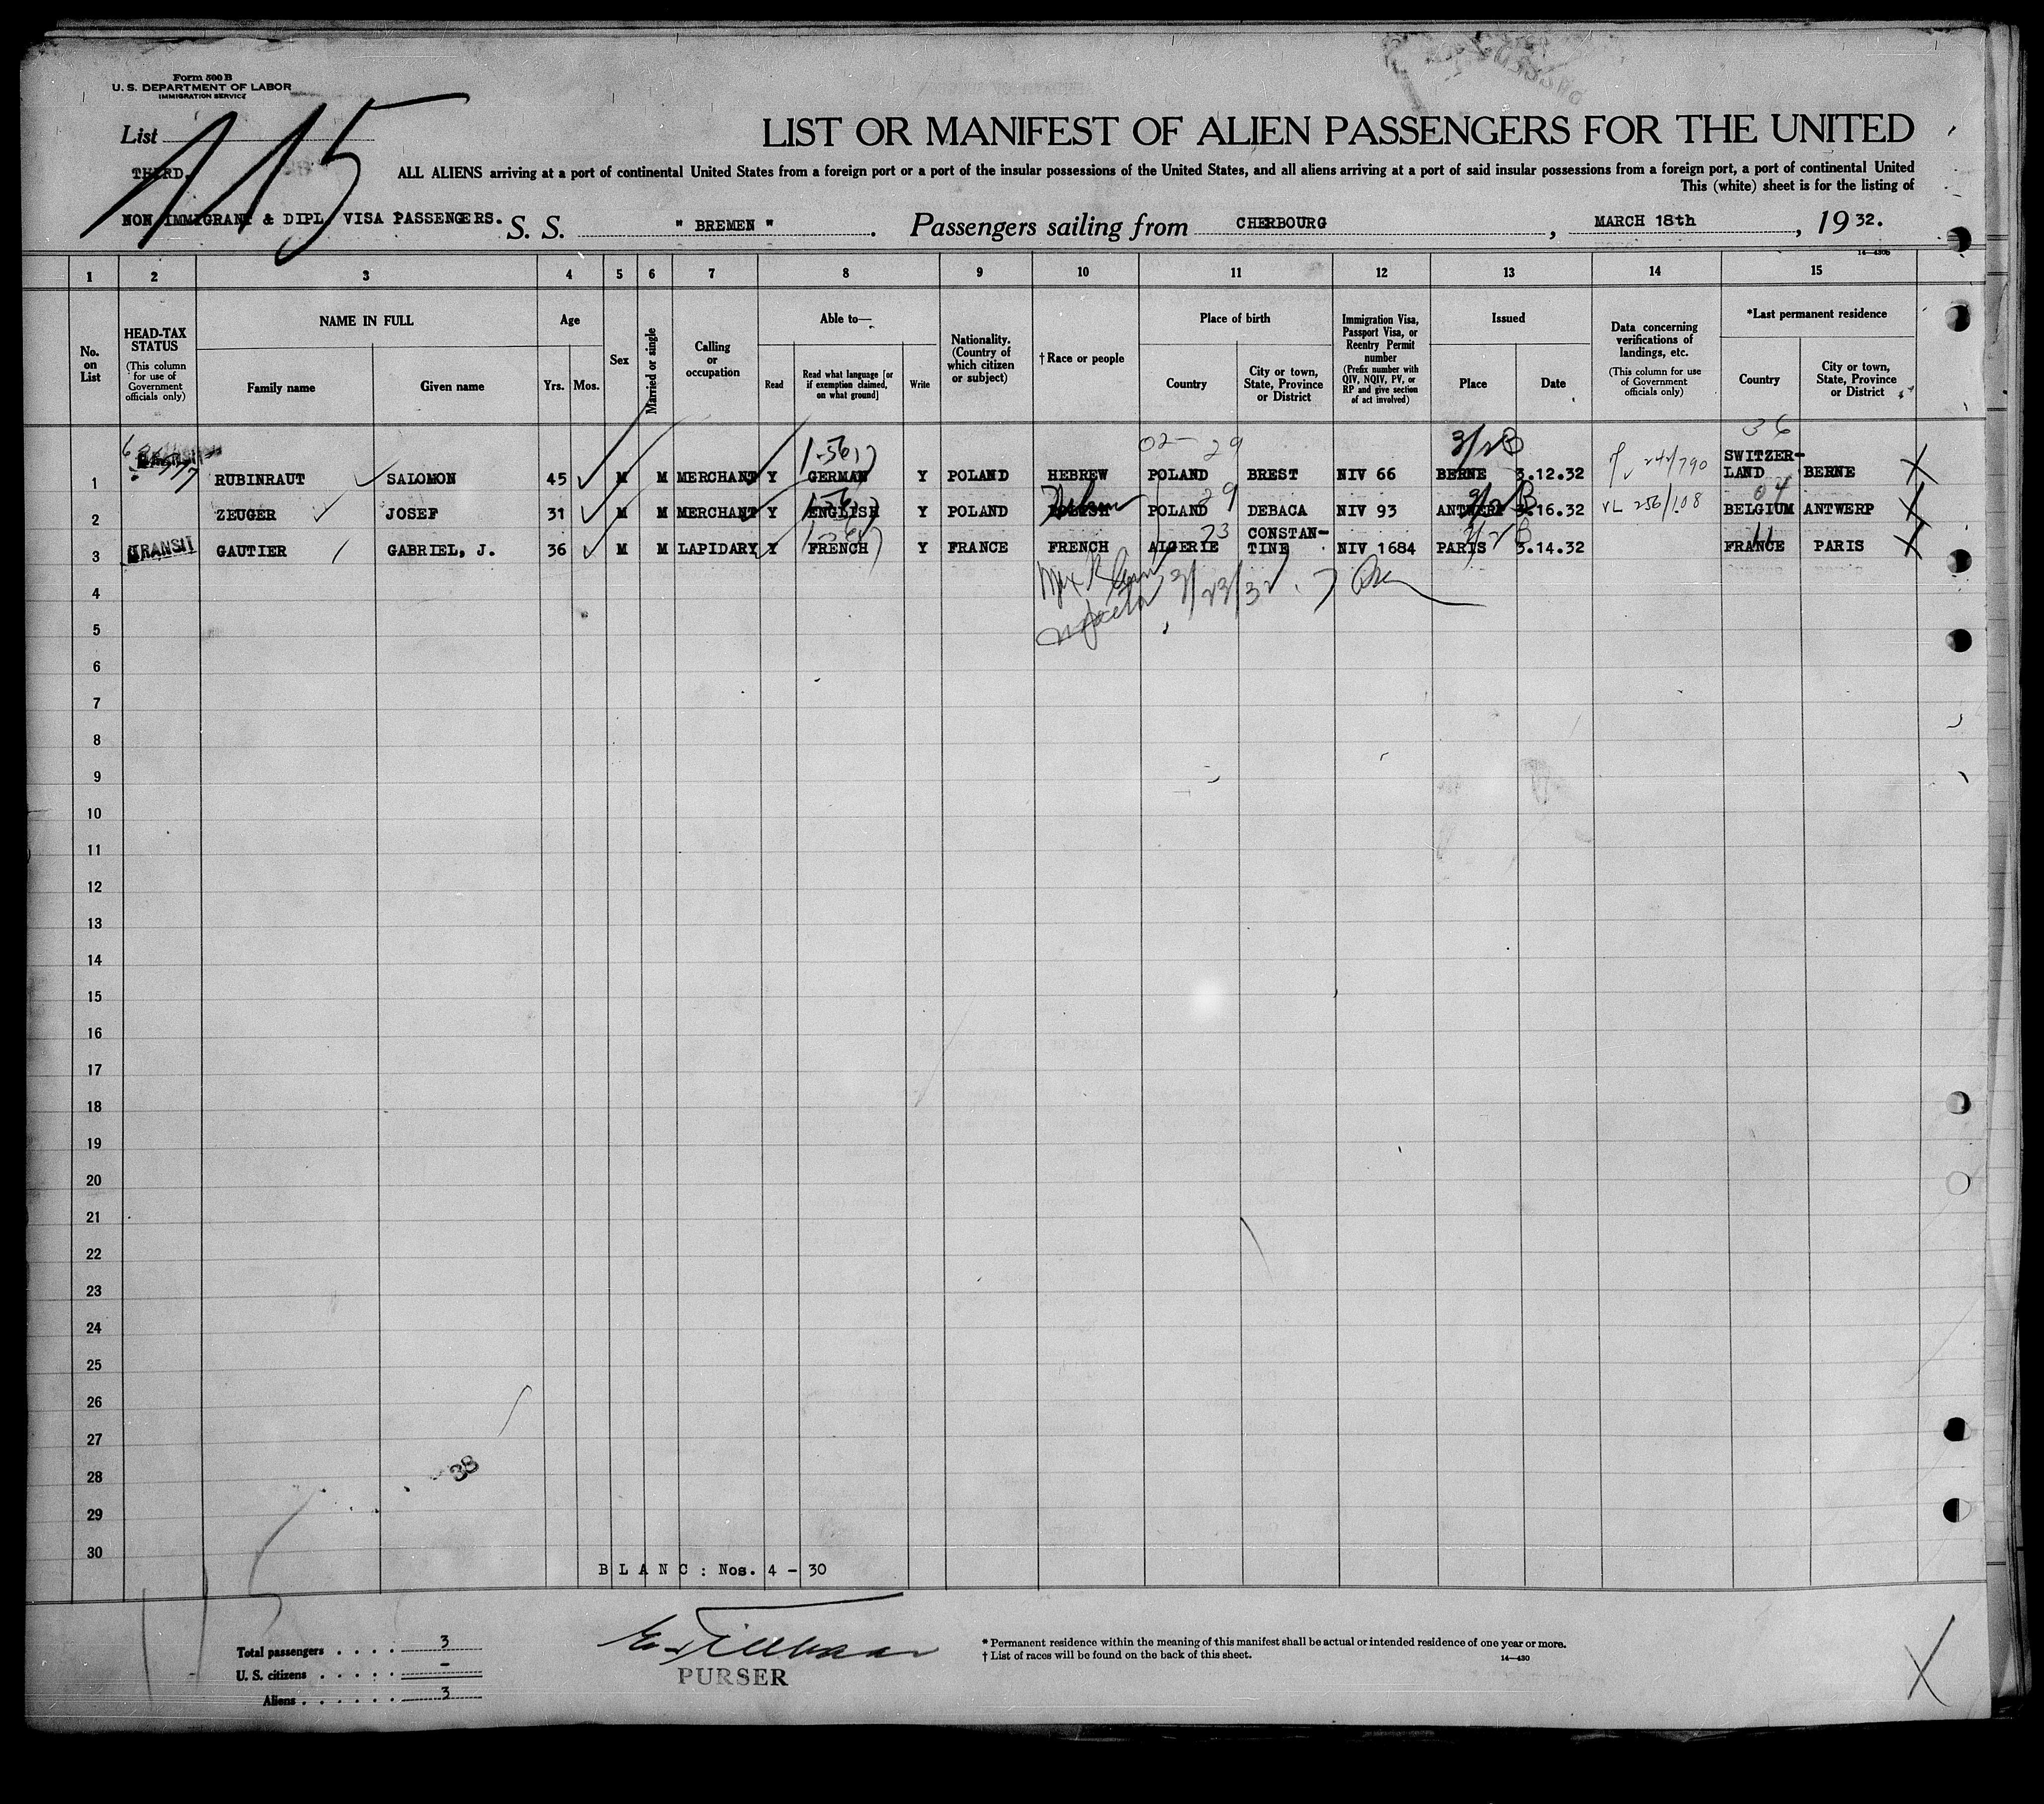 Form 500 B
U. S. DEPARTMENT OF LABOR
IMMIGRATION SERVICE
List 115
LIST OR MANIFEST OF ALIEN PASSENGERS FOR THE UNITED
THIRD.
ALL ALIENS arriving at a port of continental United States from a foreign port or a port of the insular possessions of the United States, and all aliens arriving at a port of said insular possessions from a foreign port, a port of continental United
This (white) sheet is for the listing of
NON IMMIGRANT & DIPL. VISA PASSENGERS. S. S. " BREMEN ". Passengers sailing from CHERBOURG, MARCH 18th, 19 32.
14—430B
1 2 3 4 5 6 7 8 9 10 11 12 13 14 15
No. on List
HEAD-TAX STATUS (This column for use of Government officials only)
NAME IN FULL
Family name
Given name
Age
Yrs. Mos.
Sex
Married or single
Calling or occupation
Able to—
Read
Read what language [or if exemption claimed, on what ground]
Write
Nationality. (Country of which citizen or subject)
† Race or people
Place of birth
Country
City or town, State, Province or District
Immigration Visa, Passport Visa, or Reentry Permit number (Prefix number with QIV, NQIV, PV, or RP and give section of act involved)
Issued
Place
Date
Data concerning verifications of landings, etc. (This column for use of Government officials only)
*Last permanent residence
Country
City or town, State, Province or District
02- 29 3/2 B 36
1 RUBINRAUT SALOMON 45 M M MERCHANT Y GERMAN Y POLAND HEBREW POLAND BREST NIV 66 BERNE 3.12.32 242/790 SWITZER-LAND BERNE X
29 04
2 ZEUGER JOSEF 31 M M MERCHANT Y ENGLISH Y POLAND Hebrew POLAND DEBACA NIV 93 ANTWERP 3.16.32 VL 256/108 BELGIUM ANTWERP X
23 11
3 TRANSIT GAUTIER GABRIEL, J. 36 M M LAPIDARY Y FRENCH Y FRANCE FRENCH ALGERIE CONSTAN-TINE NIV 1684 PARIS 3.14.32 FRANCE PARIS X
4 3/23/32
5
6
7
8
9
10
11
12
13
14
15
16
17
18
19
20
21
22
23
24
25
26
27
28 38
29
30
BLANC: Nos. 4 - 30
Total passengers . . . . 3
U. S. citizens . . . . . -
Aliens . . . . . . 3
PURSER
* Permanent residence within the meaning of this manifest shall be actual or intended residence of one year or more.
† List of races will be found on the back of this sheet.
14—430
X